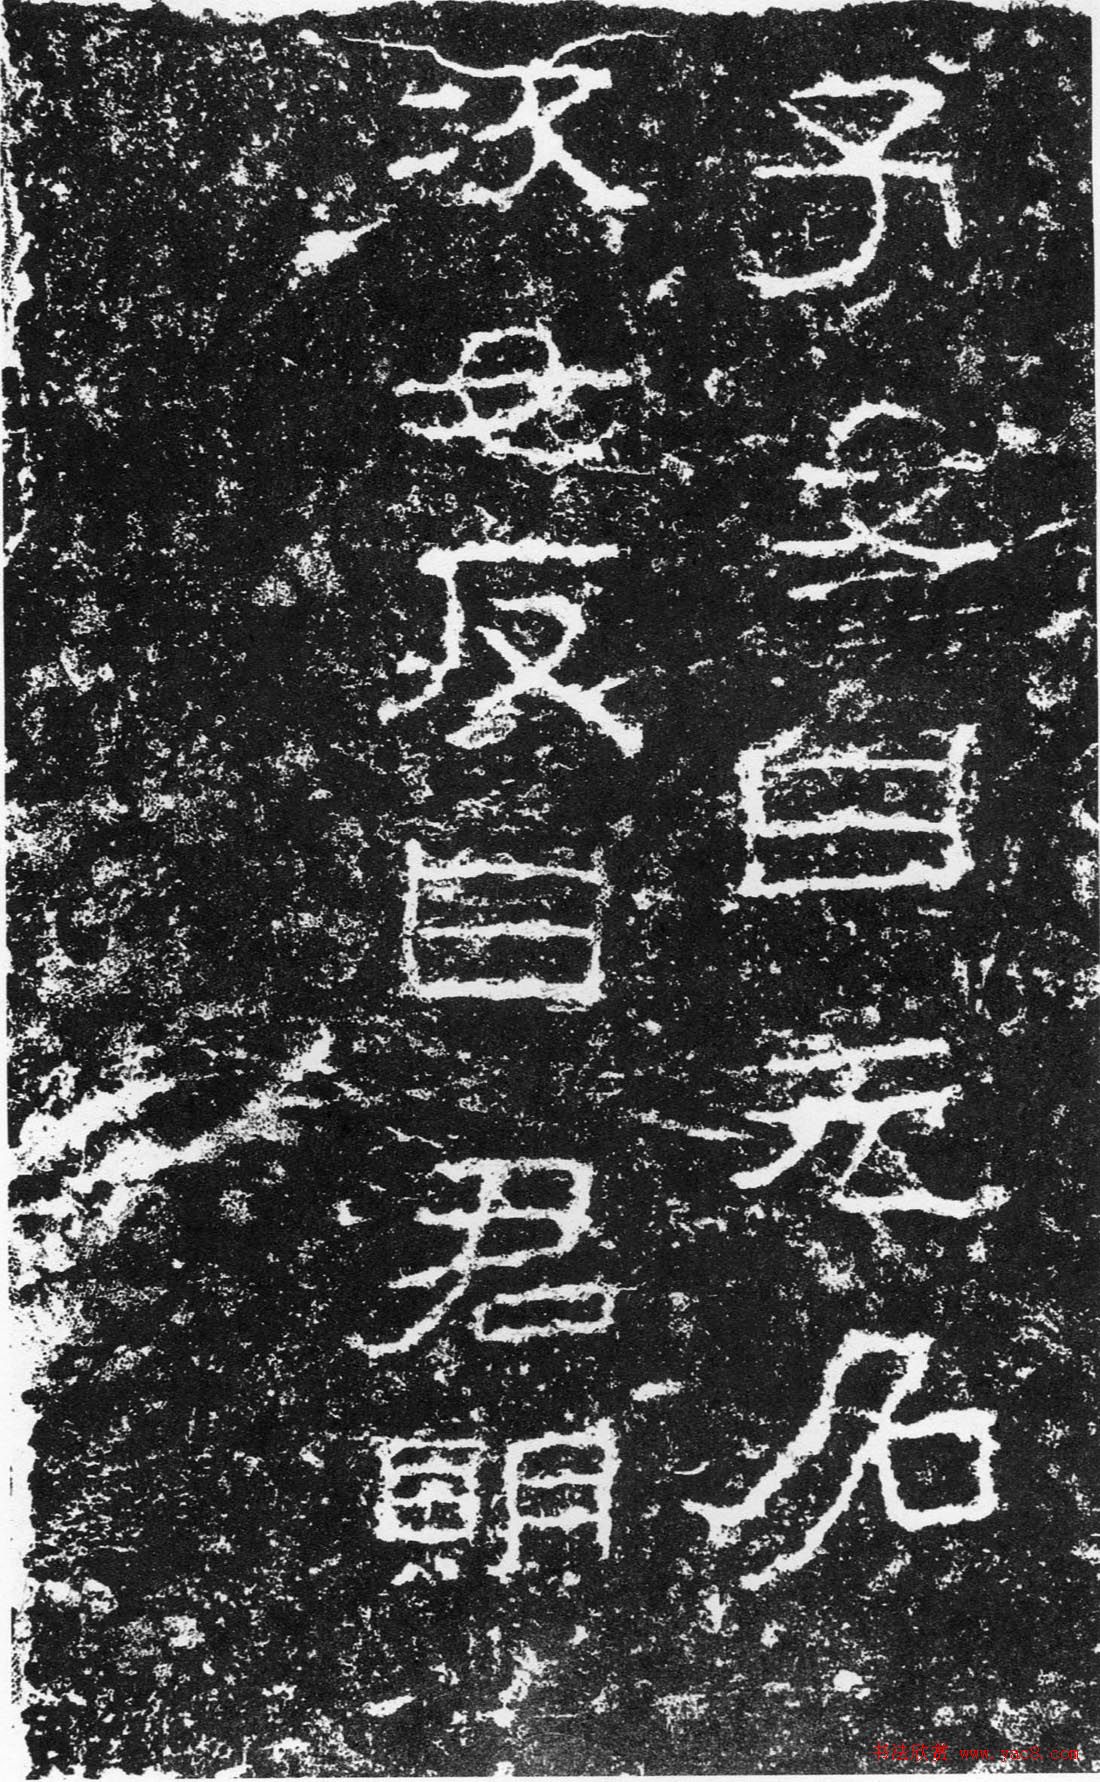 子曰元名
次反曰君明
书法欣赏 www.yac8.com